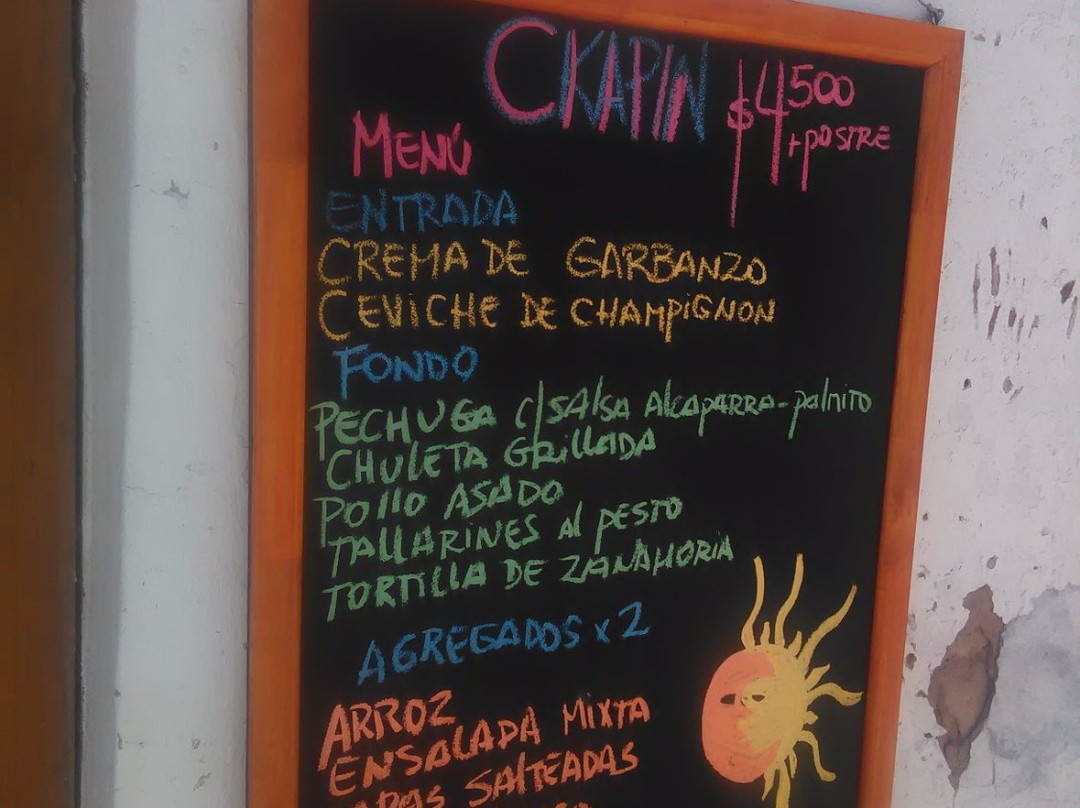 CKAPIN
$4500
+POSTRE
MENÚ
ENTRADA
CREMA DE GARBANZO
CEVICHE DE CHAMPIGNON
FONDO
PECHUGA C/SALSA ALCAPARRA-PALMITO
CHULETA GRILLADA
POLLO ASADO
TALLARINES AL PESTO
TORTILLA DE ZANAHORIA
AGREGADOS x 2
ARROZ
ENSALADA MIXTA
SALTEADAS